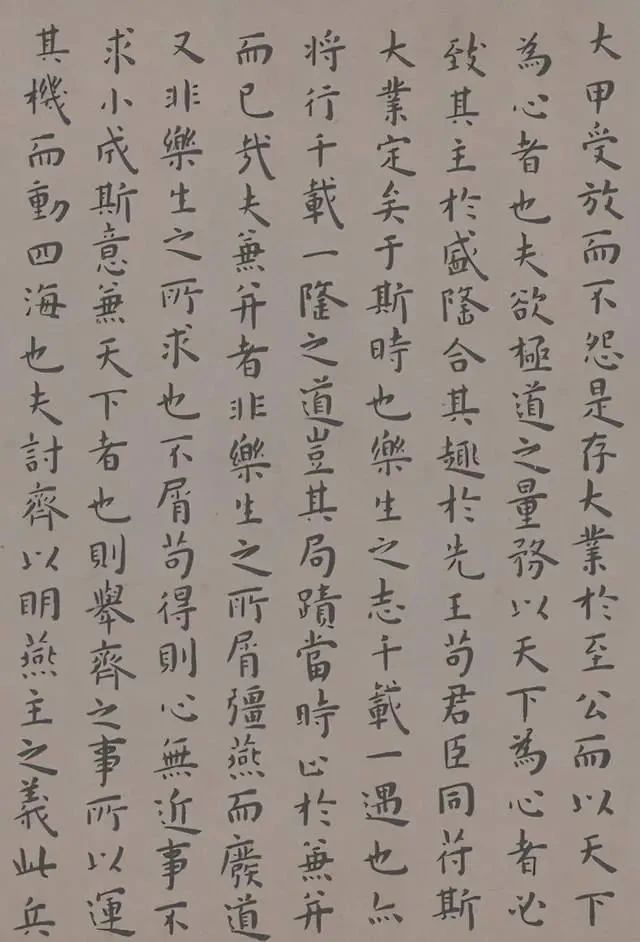 大甲受放而不怨是存大業於至公而以天下
為心者也夫欲極道之量務以天下為心者必
致其主於盛隆合其趣於先王苟君臣同苻斯
大業定矣于斯時也樂生之志千載一遇也亦
將行千載一隆之道豈其局蹟當時止於兼并
而已哉夫兼并者非樂生之所屑彊燕而廢道
又非樂生之所求也不屑苟得則心無近事不
求小成斯意兼天下者也則舉齊之事所以運
其機而動四海也夫討齊以明燕主之義此兵